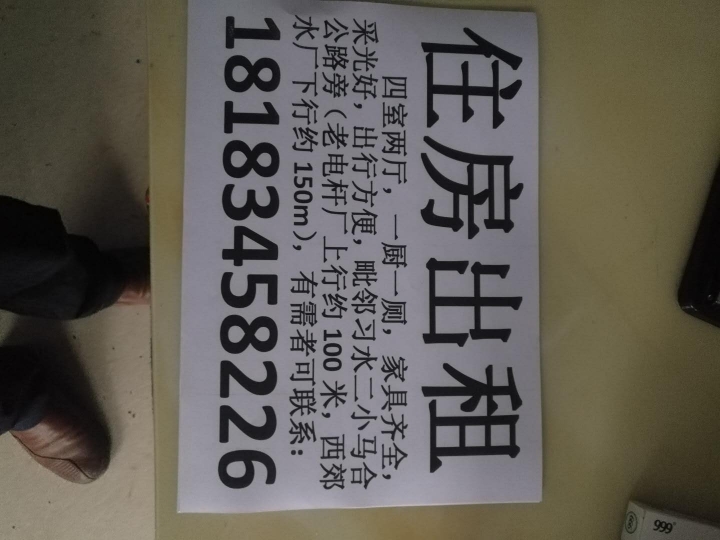 住房出租
四室两厅，一厨一厕，家具齐全，
采光好，出行方便，毗邻习水二小马合
公路旁（老电杆厂上行约 100 米，西郊
水厂下行约 150m），有需者可联系：
18183458226
999